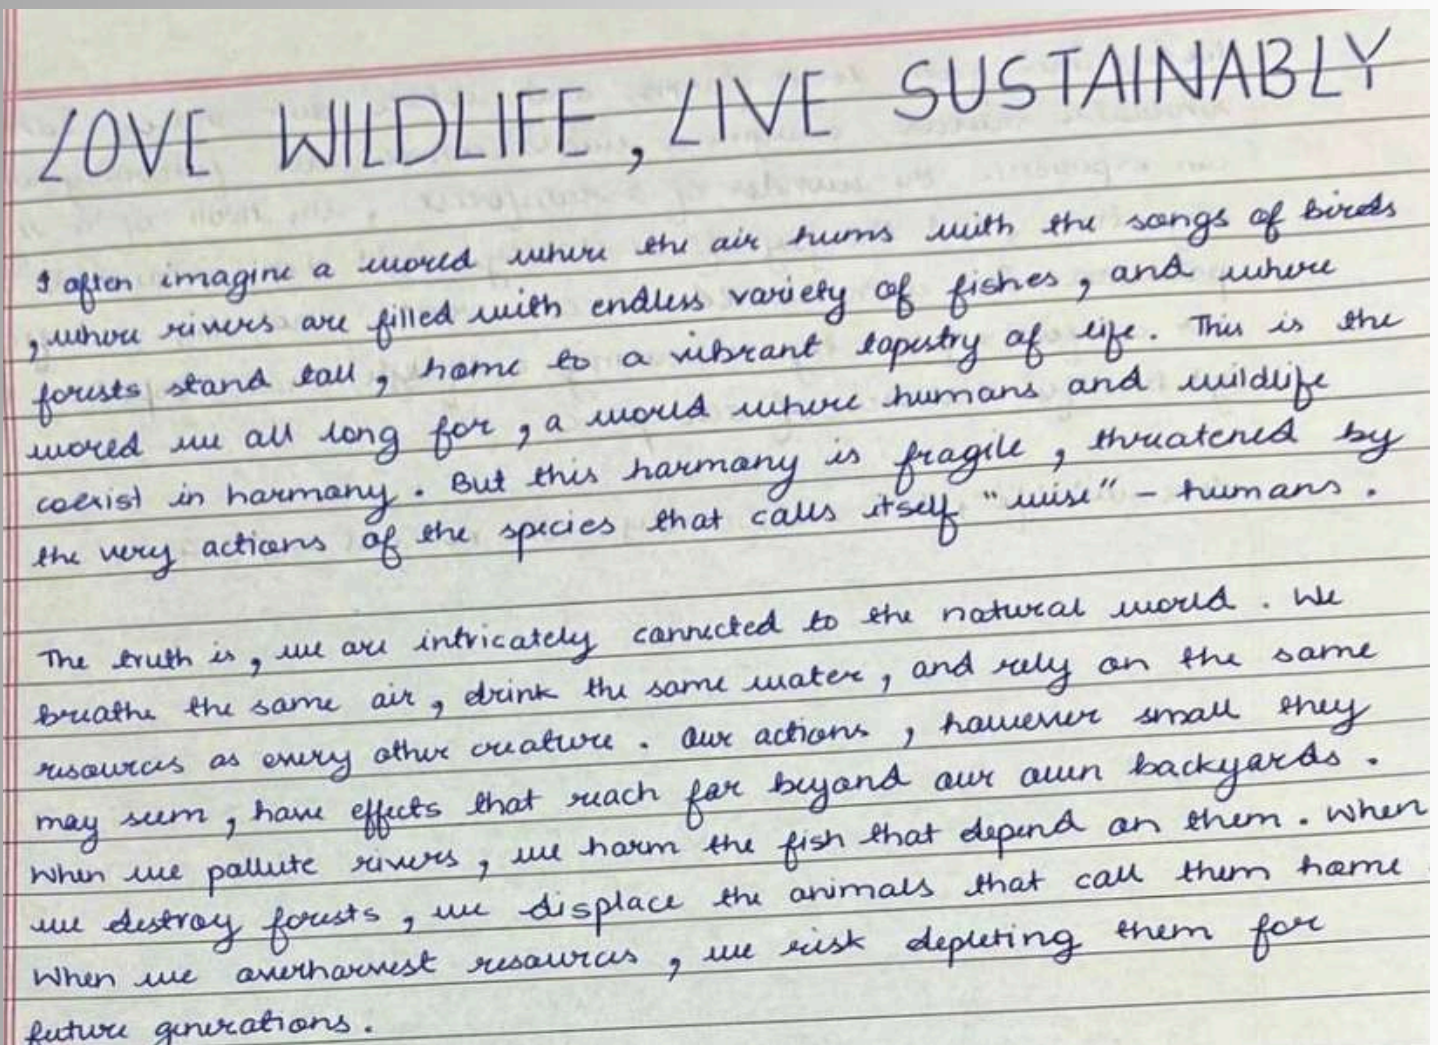 LOVE WILDLIFE, LIVE SUSTAINABLY
I often imagine a world where the air hums with the songs of birds
, where rivers are filled with endless variety of fishes, and where
forests stand tall, home to a vibrant tapestry of life. This is the
world we all long for, a world where humans and wildlife
coexist in harmony. But this harmony is fragile, threatened by
the very actions of the species that calls itself "wise" - humans.
The truth is, we are intricately connected to the natural world. We
breathe the same air, drink the same water, and rely on the same
resources as every other creature. Our actions, however small they
may seem, have effects that reach far beyond our own backyards.
When we pollute rivers, we harm the fish that depend on them. When
we destroy forests, we displace the animals that call them home.
When we overharvest resources, we risk depleting them for
future generations.